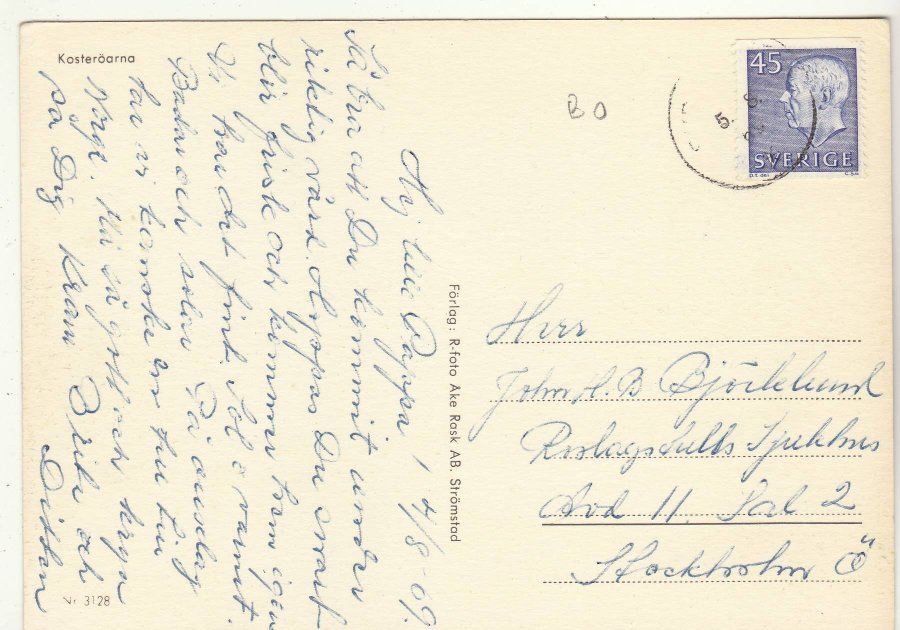 Kosteröarna
Hej lille Pappa! 4/8-69.
Så bra att Du kommit under
riktig vård. Hoppas Du snart
blir frisk och kommer hem igen
Vi har det fint. Sol o varmt.
Badar och solar På onsdag
tar vi kanske en tur till
Norge. Må så gott och kryа
på Dig Kram Brita och
Dicken
Nr 3128
Förlag: R-foto Åke Rask AB. Strömstad
BO
45
SVERIGE
5. 8.
Herr
John H. B Björklund
Roslagstulls Sjukhus
Avd 11. Sal 2
Stockholm Ö